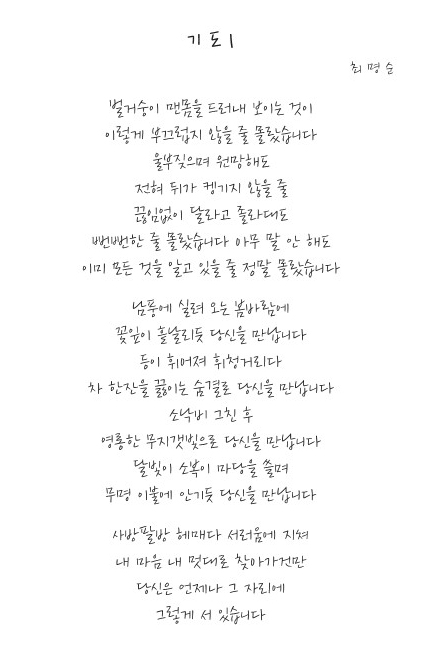 기도 1
최명순
벌거숭이 맨몸을 드러내 보이는 것이
이렇게 부끄럽지 않을 줄 몰랐습니다
울부짖으며 원망해도
전혀 뒤가 켕기지 않을 줄
끊임없이 달라고 졸라대도
뻔뻔한 줄 몰랐습니다 아무 말 안 해도
이미 모든 것을 알고 있을 줄 정말 몰랐습니다
남풍에 실려 오는 봄바람에
꽃잎이 흩날리듯 당신을 만납니다
등이 휘어져 휘청거리다
차 한잔을 끓이는 숨결로 당신을 만납니다
소낙비 그친 후
영롱한 무지갯빛으로 당신을 만납니다
달빛이 소복이 마당을 쓸며
무명 이불에 안기듯 당신을 만납니다
사방팔방 헤매다 서러움에 지쳐
내 마음 내 멋대로 찾아가건만
당신은 언제나 그 자리에
그렇게 서 있습니다